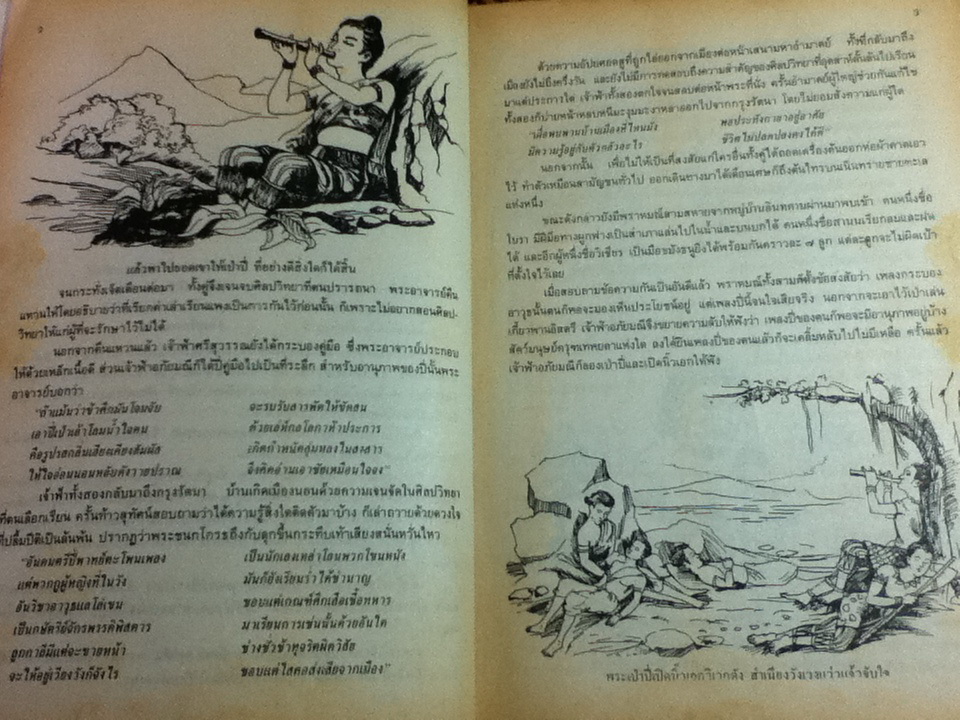 ๒
แล้วพาไปยอดเขาให้เป่าปี่ ที่อย่างดีสิ่งใดก็ได้สิ้น
จนกระทั่งเจ็ดเดือนต่อมา ทั้งคู่จึงเจนจบศิลปวิทยาที่ตนปรารถนา พระอาจารย์คืน
แหวนให้โดยอธิบายว่าที่เรียกค่าเล่าเรียนแพงเป็นการกันไว้ก่อนนั้น ก็เพราะไม่อยากสอนศิลป-
วิทยาให้แก่ผู้ที่จะรักษาไว้ไม่ได้
นอกจากคืนแหวนแล้ว เจ้าฟ้าศรีสุวรรณยังได้กระบองคู่มือ ซึ่งพระอาจารย์ประกอบ
ให้ด้วยเหล็กเนื้อดี ส่วนเจ้าฟ้าอภัยมณีก็ได้ปี่คู่มือไปเป็นที่ระลึก สำหรับอานุภาพของปี่นั้นพระ
อาจารย์บอกว่า
"ถ้าแม้นว่าข้าศึกมันโจมจับ จะรบรับสารพัดให้ขัดสน
เอาปี่เป่าเล้าโลมน้ำใจคน ด้วยเล่ห์กลโลกาห้าประการ
คือรูปรสกลิ่นเสียงเคียงสัมผัส เกิดกำหนัดลุ่มหลงในสงสาร
ให้ใจอ่อนนอนหลับดังวายปราณ จึงคิดอ่านเอาชัยเหมือนใจจง"
เจ้าฟ้าทั้งสองกลับมาถึงกรุงรัตนา บ้านเกิดเมืองนอนด้วยความเจนจัดในศิลปวิทยา
ที่ตนเลือกเรียน ครั้นท้าวสุทัศน์สอบถามว่าได้ความรู้สิ่งใดติดตัวมาบ้าง ก็เล่าถวายด้วยดวงใจ
ที่ปลื้มปิติเป็นล้นพ้น ปรากฏว่าพระชนกโกรธถึงกับลุกขึ้นกระทืบเท้าเสียงสนั่นหวั่นไหว
"อันดนตรีปี่พาทย์ตะโพนเพลง เป็นนักเลงเหล่าโลนพวกโขนหนัง
แต่พวกกูผู้หญิงที่ในวัง มันก็ยังเรียนร่ำได้ชำนาญ
อันวิชาอาวุธแลโล่เขน ชอบแต่เกณฑ์ศึกเสือเชื้อทหาร
เป็นกษัตริย์จักรพรรดิพิสดาร มาเรียนการเช่นนั้นด้วยอันใด
ลูกกาลีมีแต่จะขายหน้า ช่างชั่วช้าทุจริตผิดวิสัย
จะให้อยู่เวียงวังก็จังไร ชอบแต่ไสคอส่งเสียจากเมือง"
๓
ด้วยความอัปยศอดสูที่ถูกไล่ออกจากเมืองต่อหน้าเสนามหาอำมาตย์ ทั้งที่กลับมาถึง
เมืองยังไม่ถึงครึ่งวัน และยังไม่มีการทดสอบถึงความสำคัญของศิลปวิทยาที่อุตส่าห์ดั้นด้นไปเรียน
มาแต่ประการใด เจ้าฟ้าทั้งสองตกใจจนสลบต่อหน้าพระที่นั่ง ครั้นอำมาตย์ผู้ใหญ่ช่วยกันแก้ไข
ทั้งสองก็บ่ายหน้าหลบหนีมะงุมมะงาหลาออกไปจากกรุงรัตนา โดยไม่ยอมสั่งความแก่ผู้ใด
"เมื่อพบพานบ้านเมืองที่ไหนมั่ง พอประทังกายาอยู่อาศัย
มีความรู้อยู่กับตัวกลัวอะไร ชีวิตไม่ปลดปลงคงได้ดี"
นอกจากนั้น เพื่อไม่ให้เป็นที่สงสัยแก่ใครอื่นทั้งคู่ได้ถอดเครื่องต้นออกห่อผ้าคาดเอว
ไว้ ทำตัวเหมือนสามัญชนทั่วไป ออกเดินทางมาได้เดือนเศษก็ถึงต้นไทรบนเนินทรายชายทะเล
แห่งหนึ่ง
ขณะดังกล่าวยังมีพราหมณ์สามสหายจากหมู่บ้านอินทคามผ่านมาพบเข้า คนหนึ่งชื่อ
โมรา มีฝีมือทางผูกฟางเป็นสำเภาแล่นไปในน้ำและบนบกได้ คนหนึ่งชื่อสานนเรียกลมและฝน
ได้ และอีกผู้หนึ่งชื่อวิเชียร เป็นมือขมังธนูยิงได้พร้อมกันคราวละ ๗ ลูก แต่ละลูกจะไม่ผิดเป้า
ที่ตั้งใจไว้เลย
เมื่อสอบถามข้อความกันเป็นอันดีแล้ว พราหมณ์ทั้งสามก็ตั้งข้อสงสัยว่า เพลงกระบอง
อาวุธนั้นตนก็พอจะมองเห็นประโยชน์อยู่ แต่เพลงปี่นี้จนใจเสียจริง นอกจากจะเอาไว้เป่าเล่น
เกี้ยวพานอิสตรี เจ้าฟ้าอภัยมณีจึงขยายความลับให้ฟังว่า เพลงปี่ของตนก็พอจะมีอานุภาพอยู่บ้าง
สัตว์มนุษย์ครุฑเทพยดาแห่งใด ลงได้ยินเพลงปี่ของตนแล้วก็จะเคลิ้มหลับไปไม่มีเหลือ ครั้นแล้ว
เจ้าฟ้าอภัยมณีก็ลองเป่าปี่และเปิดนิ้วเอกให้ฟัง
พระเป่าปี่เปิดนิ้วเอกวิเวกดัง สำเนียงวังเวงแว่วแจ้วจับใจ